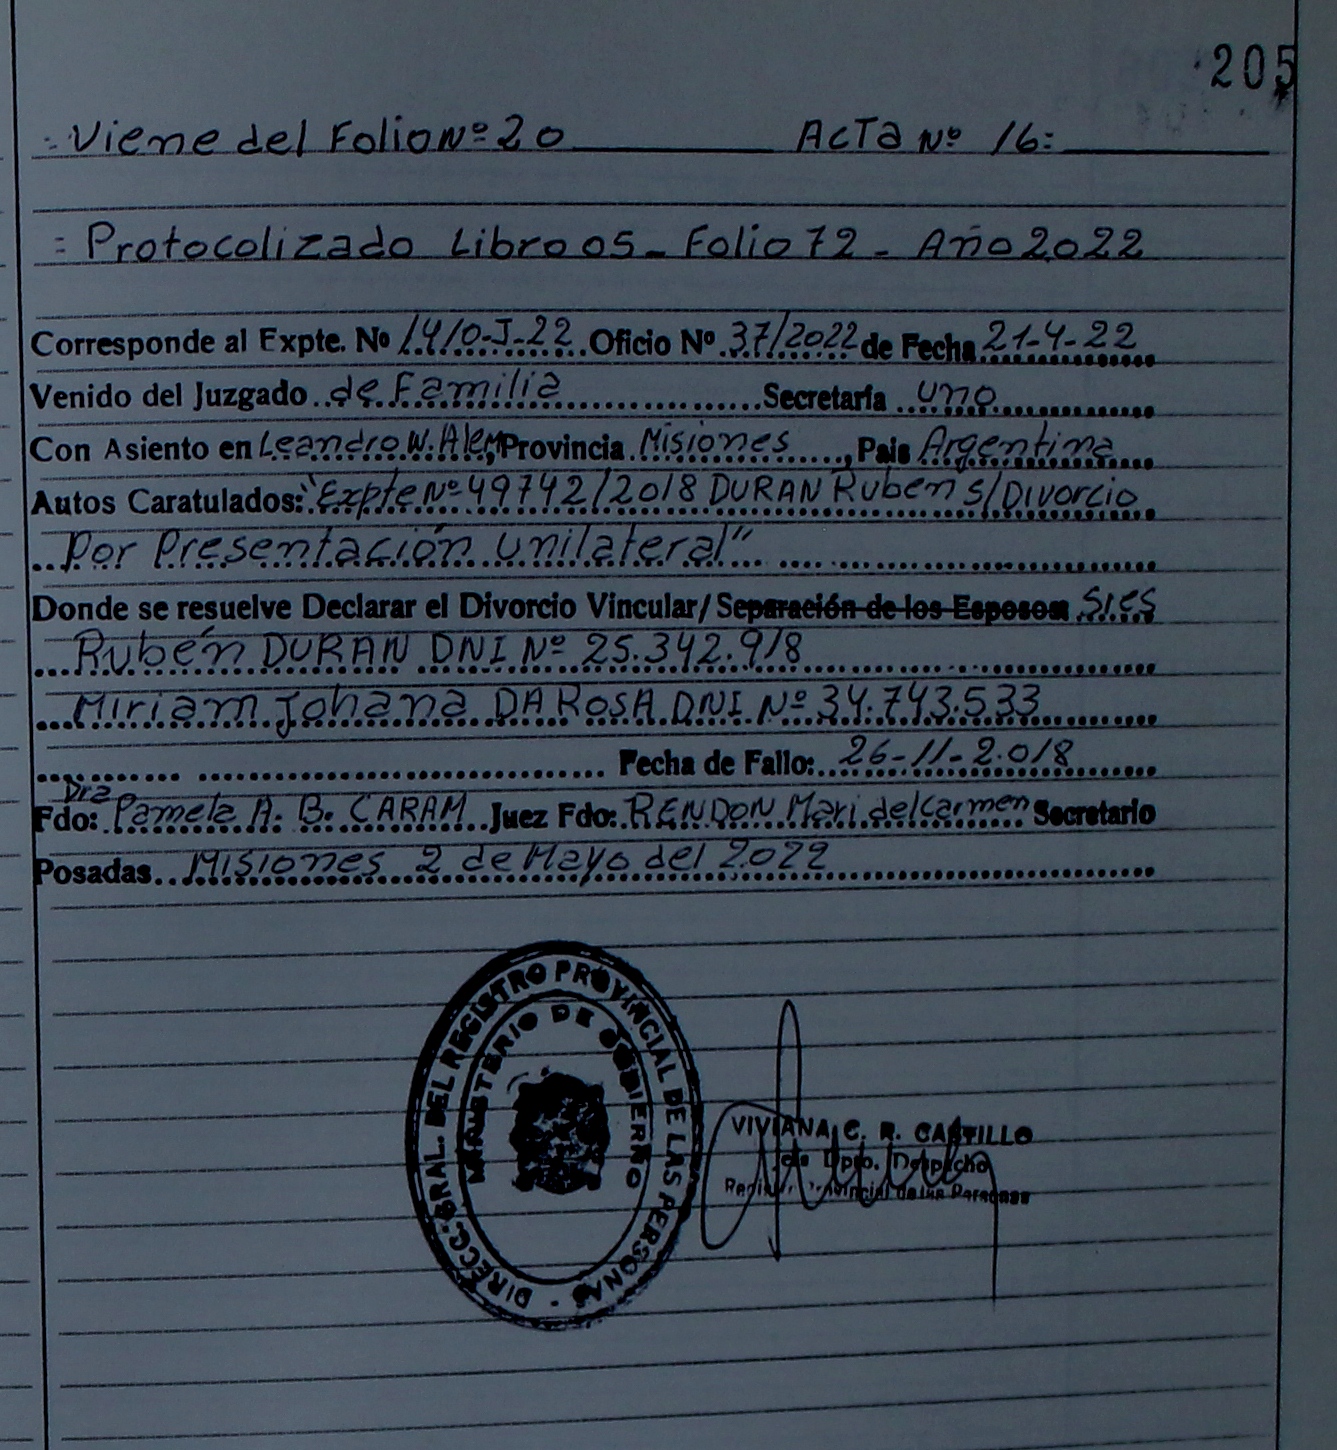 205
Viene del Folio Nº 20 Acta Nº 16:
Protocolizado Libro 05 - Folio 72 - Año 2022
Corresponde al Expte. Nº 1410-J-22 Oficio Nº 37/2022 de Fecha 21-4-22
Venido del Juzgado de Familia Secretaría uno
Con Asiento en Leandro N. Alem, Provincia Misiones, Pais Argentina
Autos Caratulados: "Expte Nº 49742/2018 DURAN Ruben s/Divorcio
Por Presentación Unilateral"
Donde se resuelve Declarar el Divorcio Vincular/ Separación de los Esposos
Rubén DURAN DNI Nº 25.342.918
Miriam Johana DA ROSA DNI Nº 34.743.533
Fecha de Fallo: 26-11-2.018
Dra
Fdo: Pamela A. B. CARAM Juez Fdo: RENDON Mari del Carmen Secretario
Posadas Misiones 2 de Mayo del 2022
DIRECC. GRAL. DEL REGISTRO PROVINCIAL DE LAS PERSONAS
MINISTERIO DE GOBIERNO
VIVIANA C. R. CASTILLO
Dpto. Despacho
Provincial de las Personas